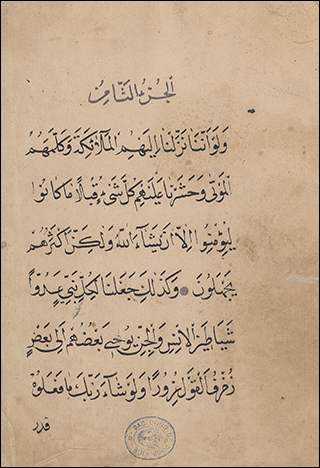 الجزء الثامن
وَلَوْ أَنَّنَا نَزَّلْنَا إِلَيْهِمُ الْمَلَائِكَةَ وَكَلَّمَهُمُ
الْمَوْتَى وَحَشَرْنَا عَلَيْهِمْ كُلَّ شَيْءٍ قُبُلًا مَا كَانُوا
لِيُؤْمِنُوا إِلَّا أَنْ يَشَاءَ اللَّهُ وَلَكِنَّ أَكْثَرَهُمْ
يَجْهَلُونَ وَكَذَلِكَ جَعَلْنَا لِكُلِّ نَبِيٍّ عَدُوًّا
شَيَاطِينَ الْإِنْسِ وَالْجِنِّ يُوحِي بَعْضُهُمْ إِلَى بَعْضٍ
زُخْرُفَ الْقَوْلِ غُرُورًا وَلَوْ شَاءَ رَبُّكَ مَا فَعَلُوهُ